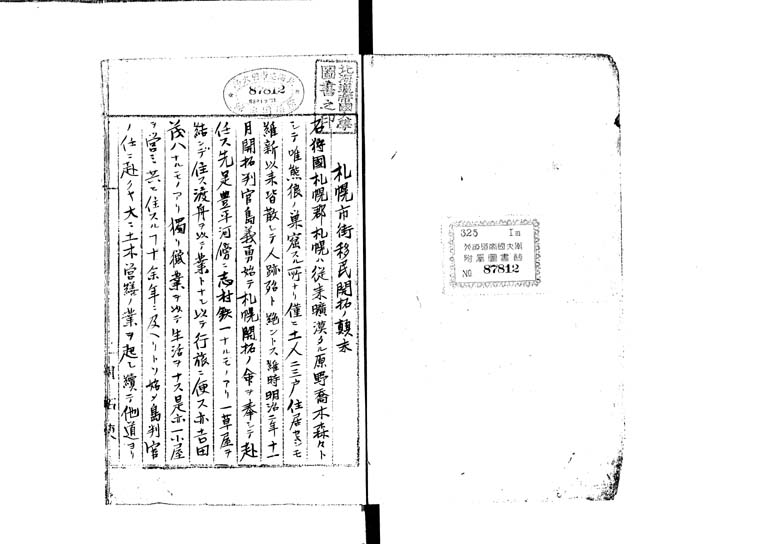 325 Im
北海道帝國大學
附屬圖書館
No 87812
北海道帝國大學
圖書之印
87812
札幌市街移民開拓ノ顛末
石狩國札幌郡札幌ハ從来曠漠タル原野喬木森々ト
シテ唯熊狼ノ巣窟スル所ナリ僅ニ土人二三戸住居セシモ
維新以来皆散シテ人跡殆ト絶ントス維時明治二年十一
月開拓判官島義勇始テ札幌開拓ノ命ヲ奉シテ赴
任ス先是豊平河傍ニ志村鉄一ナルモノアリ一草屋ヲ
結ンデ住ス渡舟ヲ以テ業トナシ以テ行旅ニ便ス亦吉田
茂八ナルモノアリ獨リ獵業ヲ以テ生活ヲナス是亦一小屋
ヲ営ミ共ニ住スルヿ十余年ニ及ヘリトソ始メ島判官
ノ任ニ赴クヤ大ニ土木営繕ノ業ヲ起シ續テ他道ヨリ
開拓使